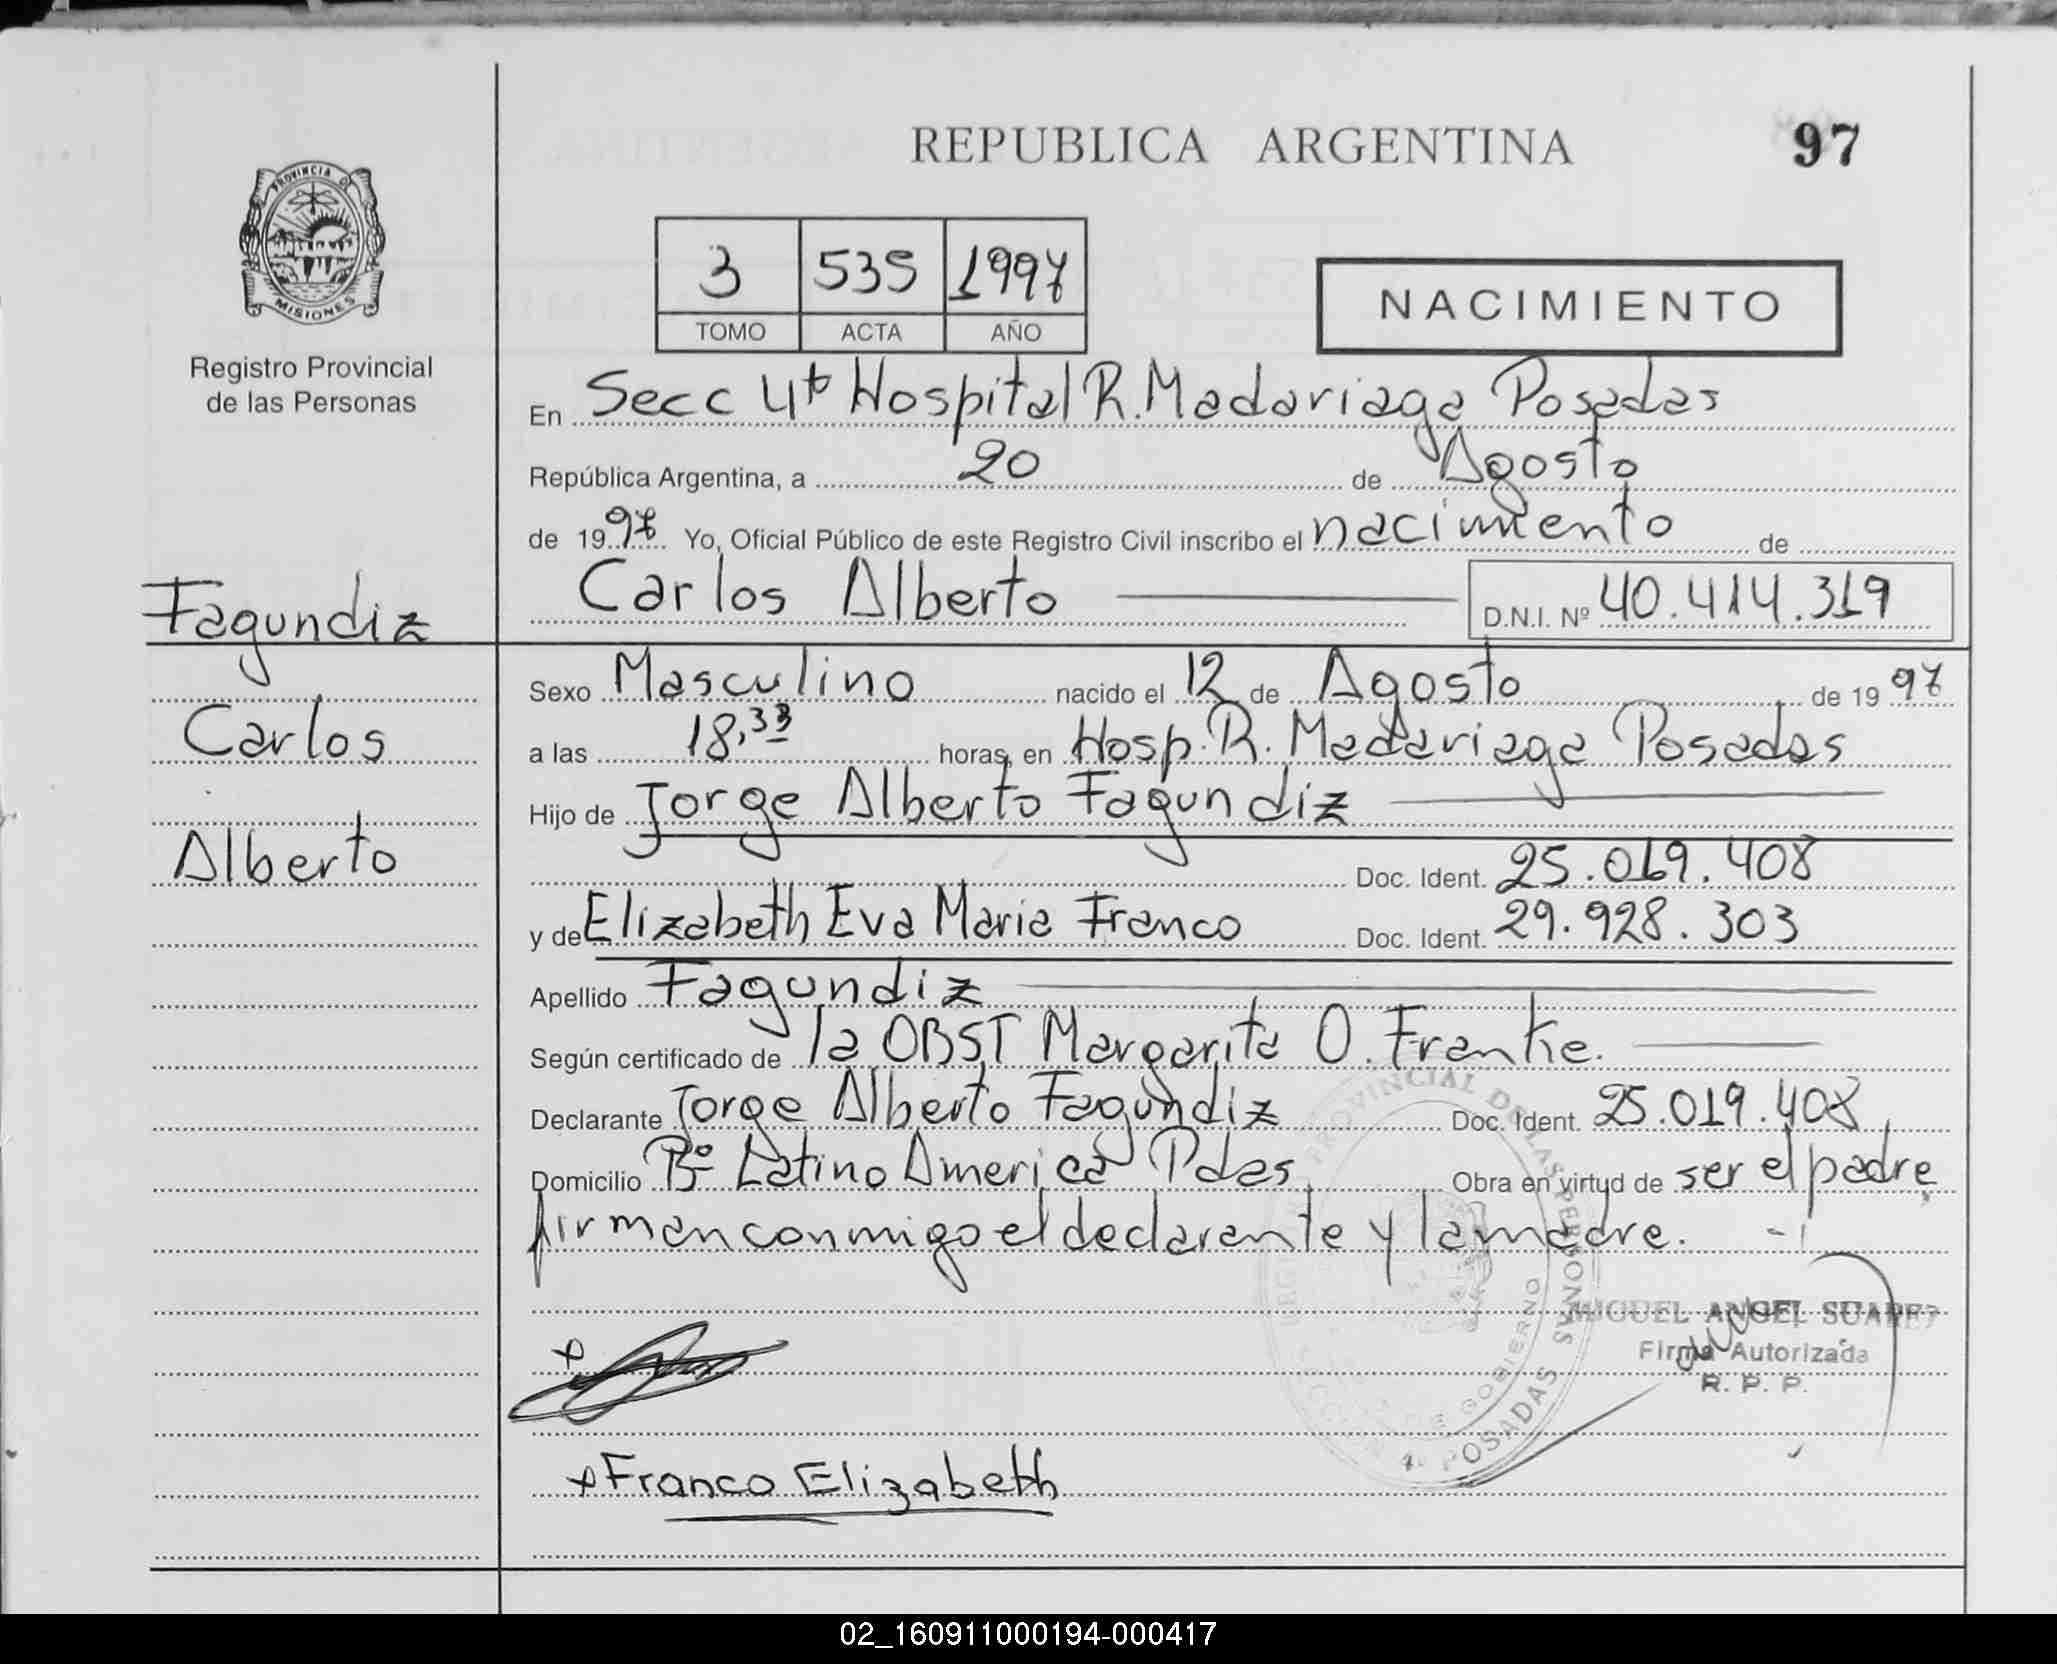 REPUBLICA ARGENTINA
97
PROVINCIA D
MISIONES
Registro Provincial
de las Personas
3 535 1997
TOMO ACTA AÑO
NACIMIENTO
En Secc 4ta Hospital R. Madariaga Posadas
República Argentina, a 20 de Agosto
de 1997 Yo, Oficial Público de este Registro Civil inscribo el nacimiento de
Carlos Alberto D.N.I. Nº 40.414.319
Fagundiz
Carlos
Alberto
Sexo Masculino nacido el 12 de Agosto de 1997
a las 18,33 horas, en Hosp. R. Madariaga Posadas
Hijo de Jorge Alberto Fagundiz
Doc. Ident. 25.019.408
y de Elizabeth Eva Maria Franco Doc. Ident. 29.928.303
Apellido Fagundiz
Según certificado de la OBST Margarita O. Franke.
Declarante Jorge Alberto Fagundiz Doc. Ident. 25.019.408
Domicilio Bº Latino America Pdas Obra en virtud de ser el padre,
firman conmigo el declarante y la madre.
PROVINCIAL DE LAS PERSONAS
DE GOBIERNO
POSADAS
MIGUEL ANGEL SUAREZ
Firma Autorizada
R. P. P.
Franco Elizabeth
02_160911000194-000417